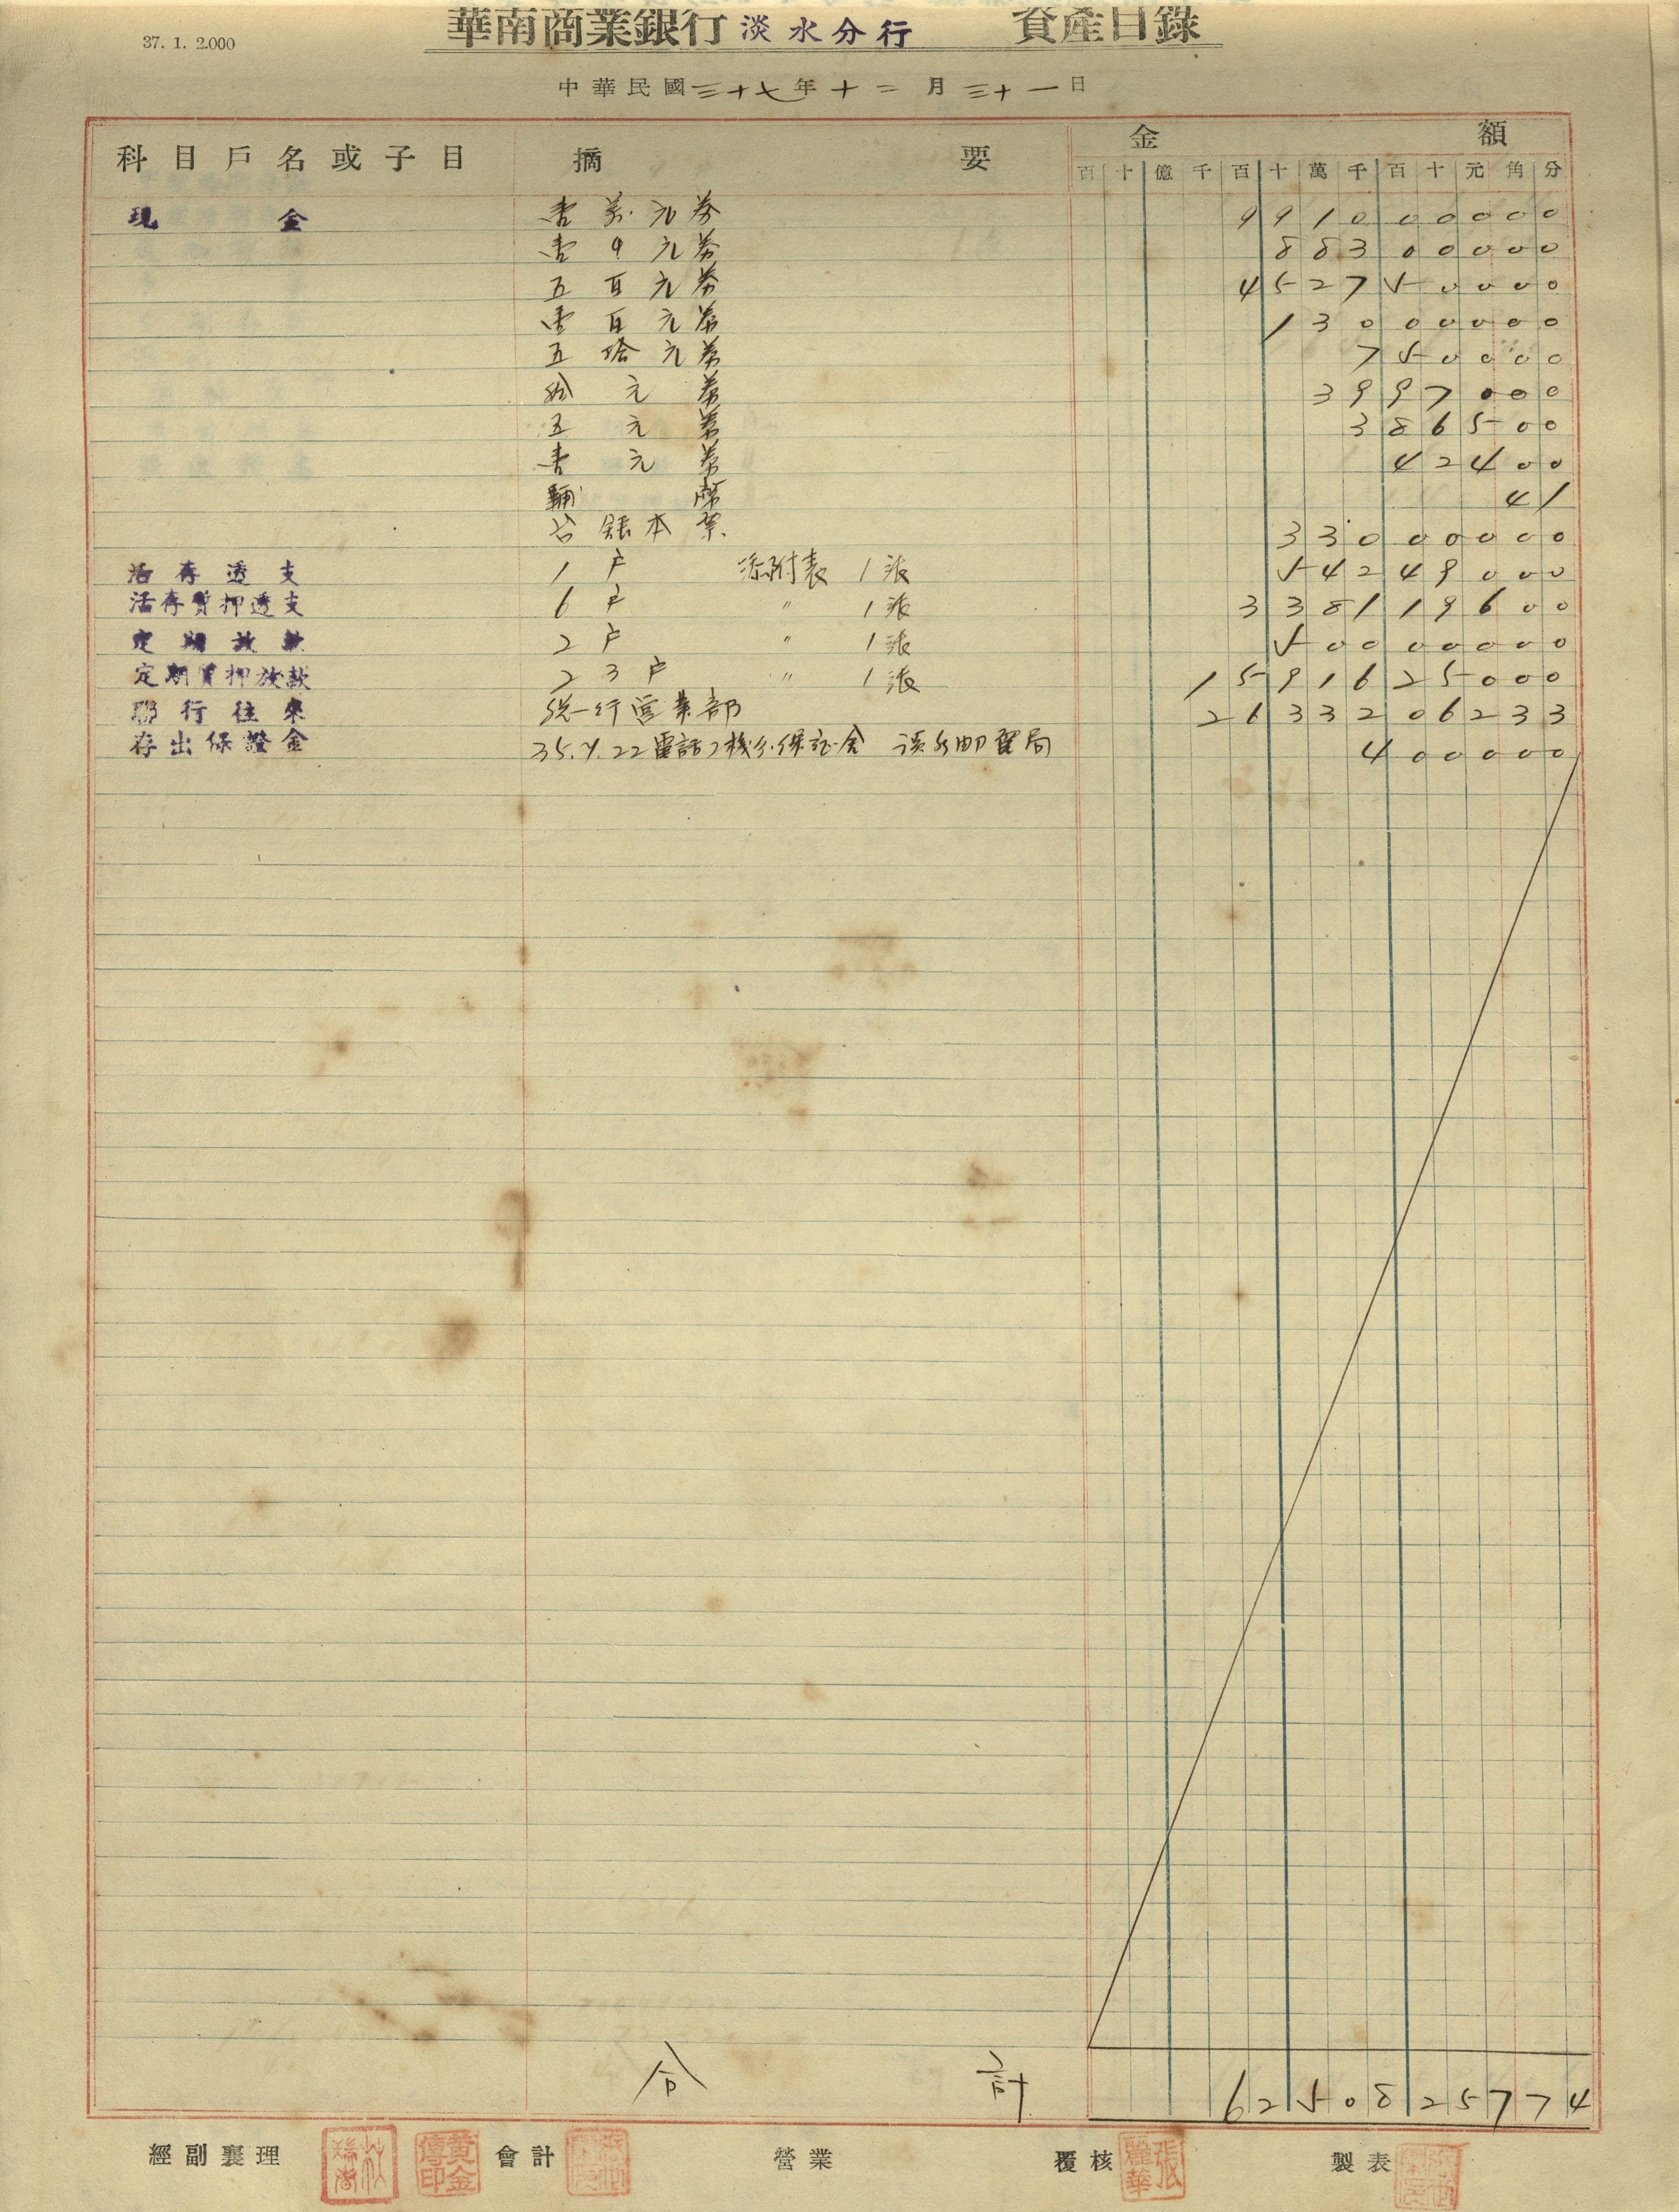 37. 1. 2.000
華南商業銀行 淡水分行 資產目錄
中華民國三十七年十二月三十一日
科目戶名或子目 摘要 金額
百 十 億 千 百 十 萬 千 百 十 元 角 分
現金 壹萬元券 9910 00000
壹千元券 883 00000
五百元券 4527 50000
壹百元券 130 00000
五拾元券 7 50000
拾元券 39 97000
五元券 3 86500
壹元券 42400
輔幣 41
台銀本票 330 00000
活存透支 1戶 添附表 1張 542 49000
活存質押透支 6戶 〃 1張 3381 19600
定期放款 2戶 〃 1張 500 00000
定期質押放款 23戶 〃 1張 15916 25000
聯行往來 統一行營業部 26332 06233
存出保證金 35.7.22電話2機分保証金 淡水郵電局 4 00000
合計 62508 25774
經副襄理 會計 營業 覆核 製表
黃金傳印
張麗華